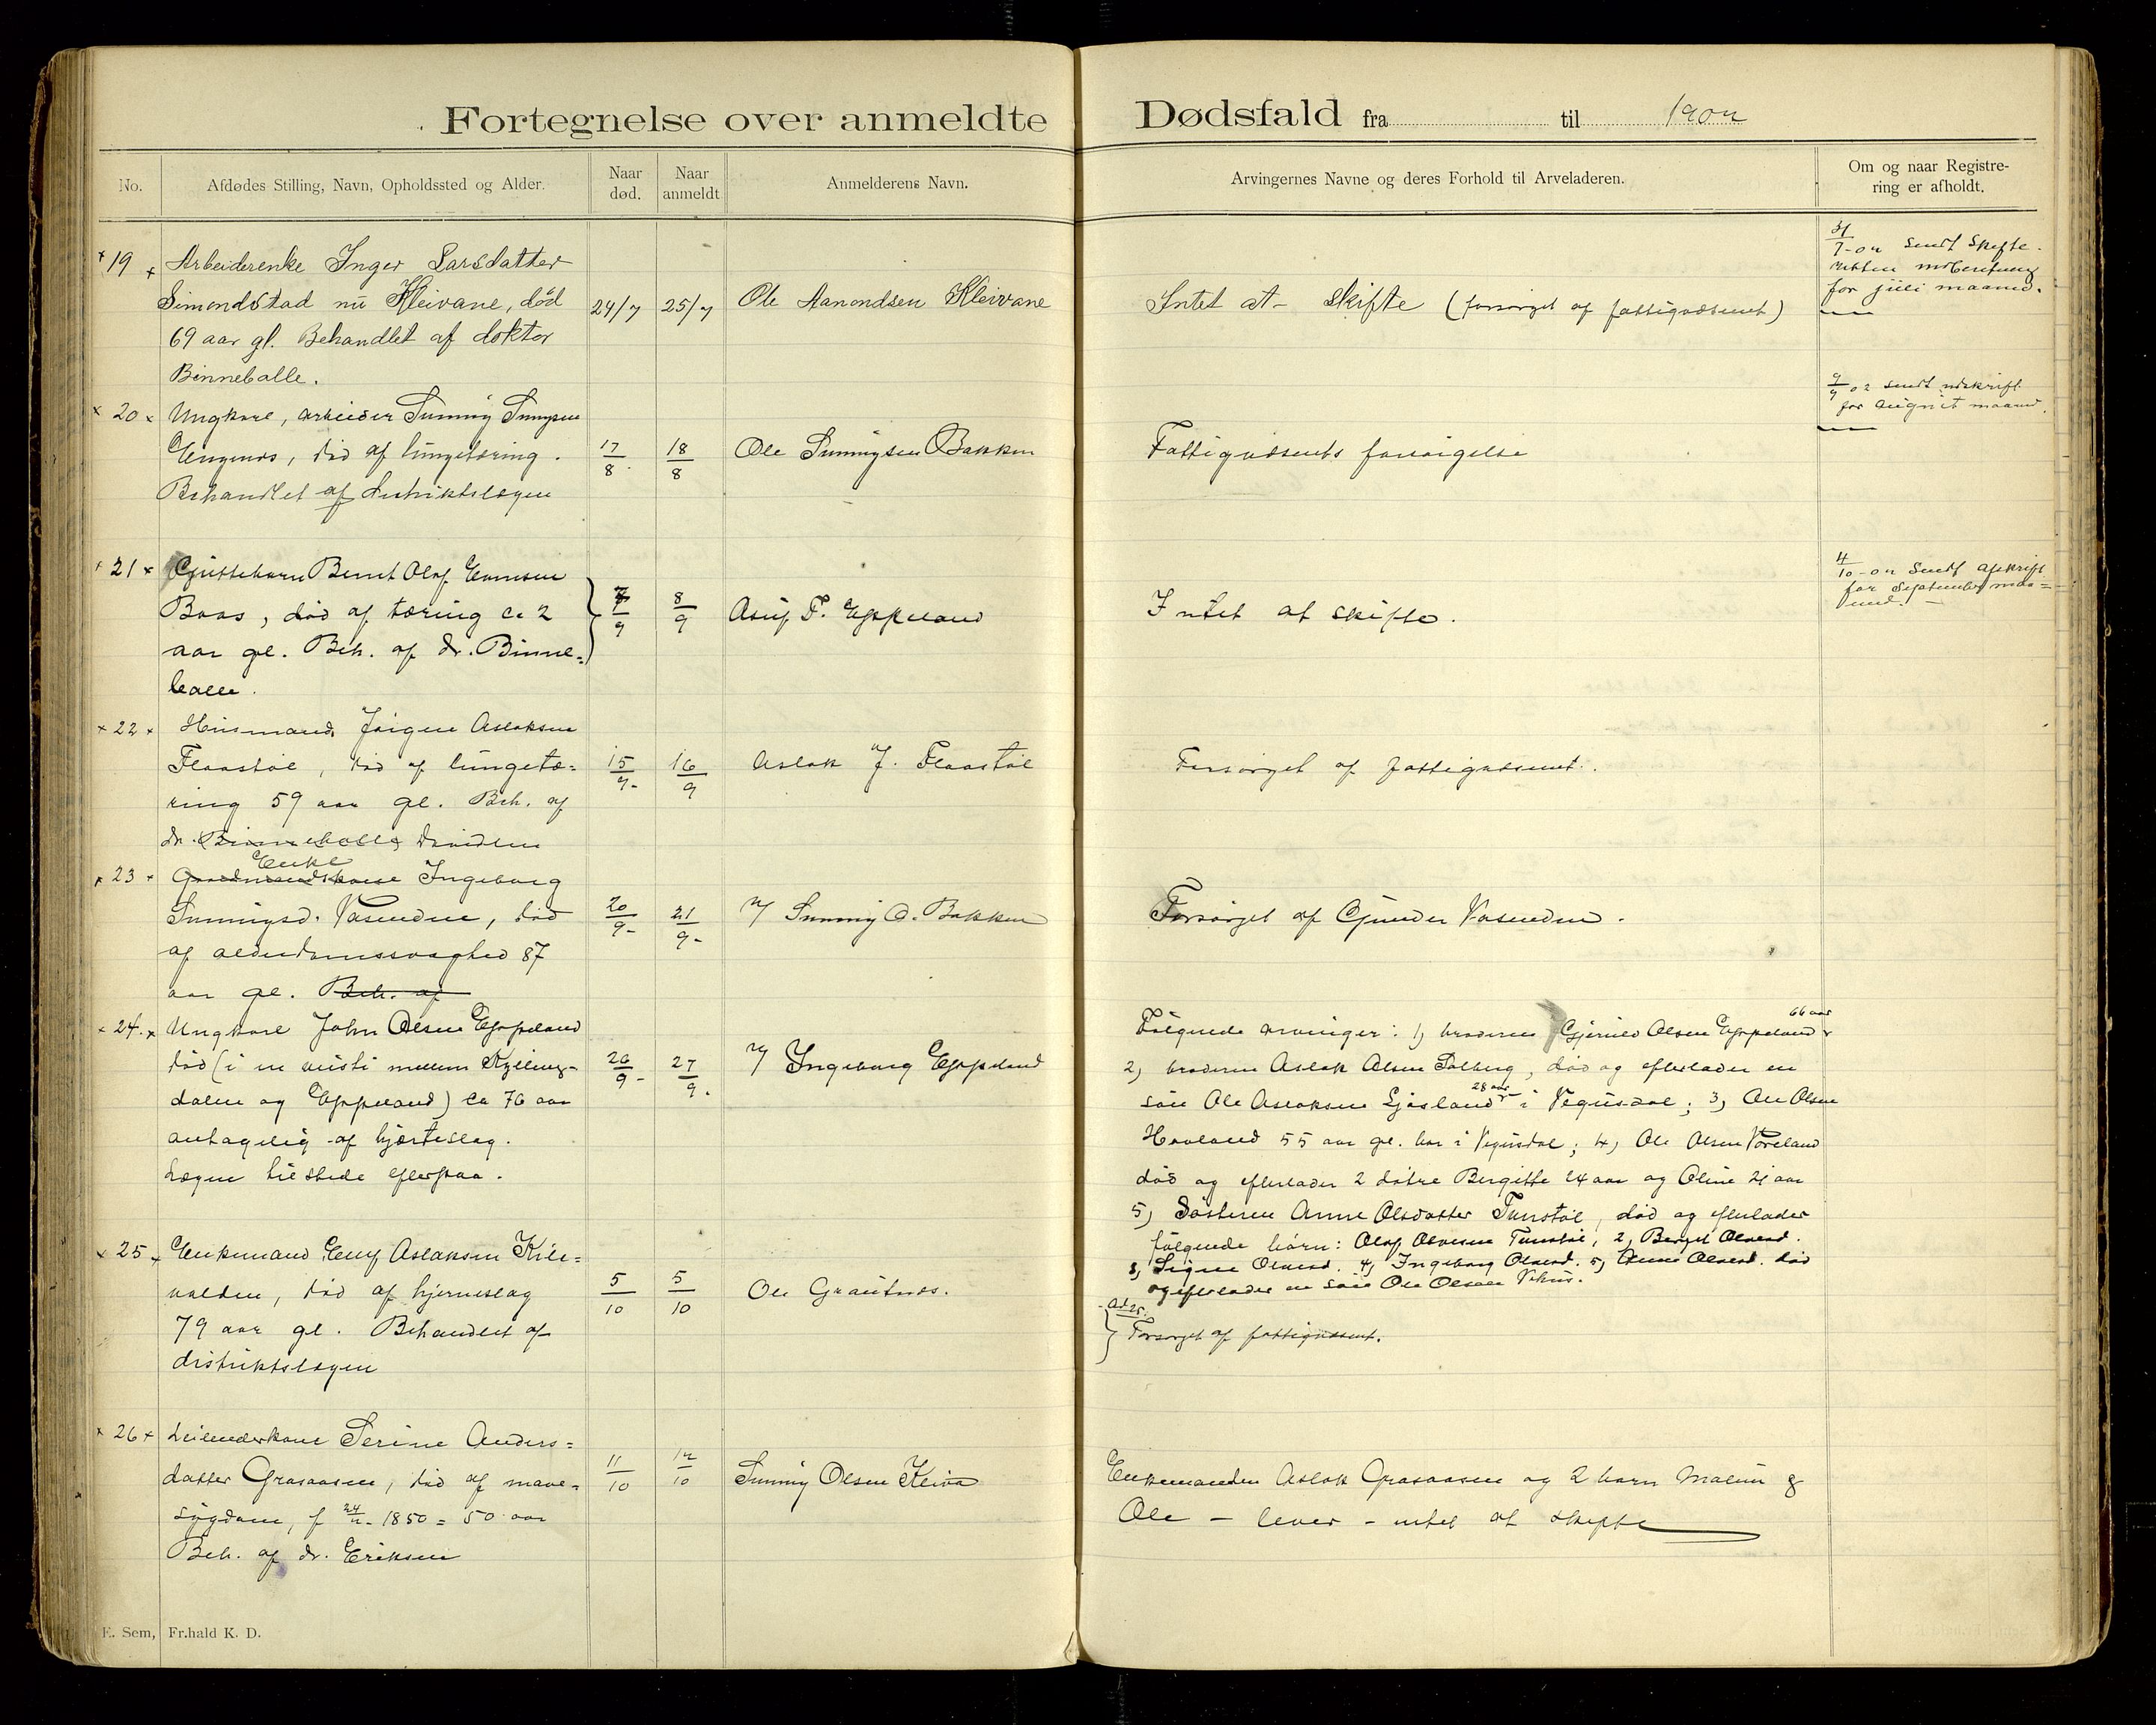 Fortegnelse over anmeldte Dødsfald fra til 1902
No.
Afdødes Stilling, Navn, Opholdssted og Alder.
Naar død.
Naar anmeldt
Anmelderens Navn.
Arvingernes Navne og deres Forhold til Arveladeren.
Om og naar Registrering er afholdt.
19 Arbeiderenke Inger Larsdatter
Simondstad nu Kleivane, død
69 aar gl. Behandlet af doktor
Binneballe.
24/7 25/7 Ole Aanondsen Kleivane
Intet at skifte (forsørget af fattigvæsenet)
31/7-02 sendt skifte-
retten indberetning
for juli maaned.
20 Ungkarl, arbeider Sunnig Sunnigsen
Engenes, død af lungetæring.
Behandlet af distriktslægen
17/8. 18/8 Ole Sunnigsen Bakken
Fattigvæsenets forsørgelse
9/9 02 sendt udskrift
for august maaned.
21 Guttebarn Bernt Olaf Evensen
Baas, død af tæring ca 2
aar gl. Beh. af dr. Binne=
balle.
7/9 8/9 F. Eppeland
Intet at skifte.
4/10-02 sendt afskrift
for September maa=
ned.
22 Husmand Jørgen Aslaksen
Flaastøl, død af lungetæ=
ring 59 aar gl. Beh. af
dr. Binneballe Davidsen
15/9- 16/9 Aslak J. Flaastøl
Forsørget af fattigvæsenet.
Enke
23 Gaardmandskone Ingeborg
Sunnigsd. Vasenden, død
af alderdomssvaghed 87
aar gl. Beh. af
20/9- 21/9- Sunnig O. Bakken
Forsørget af Gunder Vasenden.
24. Ungkarl John Olsen Eppeland
død (i en mellem Kylling-
dalen og Eppeland) ca 76 aar
antagelig af hjerteslag.
Lægen tilstede efterpaa.
26/9- 27/9. Ingeborg Eppeland
66 aar
Følgende arvinger: 1) broderen Olsen Eppeland
2) broderen Aslak Olsen Solberg, død og efterlader en
28 aar
søn Ole Aslaksen Ljosland i Vegusdal; 3) Olsen
Hovland 55 aar gl. bor i Vegusdal; 4) Ole Olsen Væreland
død og efterlader 2 døtre Bergitte 24 aar og Oline 21 aar
5) Søsteren Anne Olsdatter Tunstøl, død og efterlader
følgende børn: Olaf Tunstøl, 2, Berget
3, Signe 4, Ingeborg 5, Anne død
og efterlader en søn Ole Olsen
25 Enkemand Aslaksen Kile=
valden, død af hjerneslag
79 aar gl. Behandlet af
distriktslægen
5/10 5/10 Ole Grautnes.
Ad 25.
Forsørget af fattigvæsenet.
26 Leilænderkone Serine Anders=
datter Graasaasen, død af mave=
sygdom, f 1850 = 50 aar
Beh. af dr. Eriksen
11/10 12/10 Sunnig Olsen Kleiva
Enkemanden Aslak Graasaasen og 2 barn Malin &
Ole - lever - intet at skifte
E. Sem, Fr.hald K. D.